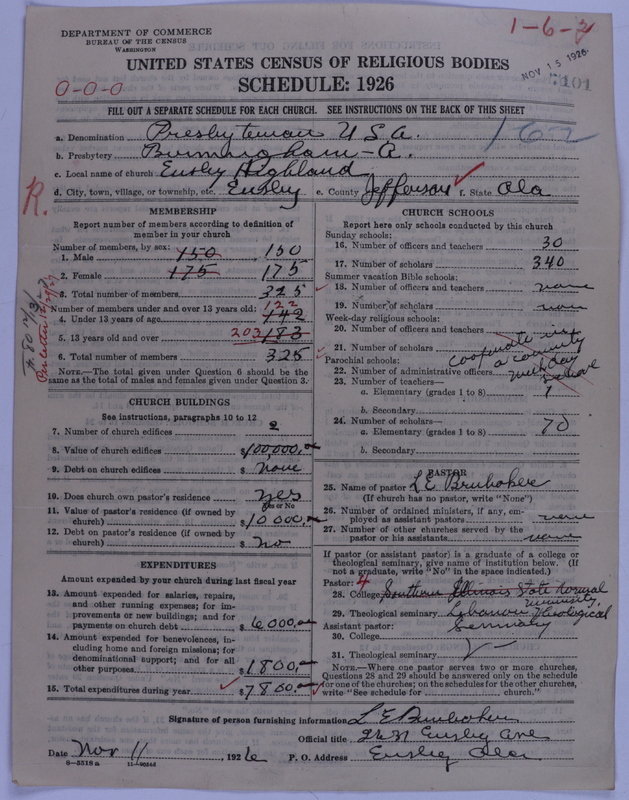 DEPARTMENT OF COMMERCE
BUREAU OF THE CENSUS
WASHINGTON
1-6-2
NOV 15 1926
UNITED STATES CENSUS OF RELIGIOUS BODIES
SCHEDULE: 1926
0-0-0
FILL OUT A SEPARATE SCHEDULE FOR EACH CHURCH. SEE INSTRUCTIONS ON THE BACK OF THIS SHEET
a. Denomination Presbyterian U S A.
162
b. Presbytery Birmingham-A.
c. Local name of church Ensley Highland
d. City, town, village, or township, etc. Ensley e. County Jefferson f. State Ala
R.
MEMBERSHIP
Report number of members according to definition of member in your church
Number of members, by sex:
1. Male 150 150
2. Female 175 175
3. Total number of members 325
Number of members under and over 13 years old: 122
4. Under 13 years of age 142
5. 13 years old and over 203 183
6. Total number of members 325
NOTE.—The total given under Question 6 should be the same as the total of males and females given under Question 3.
CHURCH BUILDINGS
See instructions, paragraphs 10 to 12
7. Number of church edifices 2
8. Value of church edifices $100,000.00
9. Debt on church edifices $ none
10. Does church own pastor's residence yes
Yes or No
11. Value of pastor's residence (if owned by church) $10000.00
12. Debt on pastor's residence (if owned by church) $ no
EXPENDITURES
Amount expended by your church during last fiscal year
13. Amount expended for salaries, repairs, and other running expenses; for improvements or new buildings; and for payments on church debt $6000.00
14. Amount expended for benevolences, including home and foreign missions; for denominational support; and for all other purposes $1800.00
15. Total expenditures during year $7800.00
CHURCH SCHOOLS
Report here only schools conducted by this church
Sunday schools:
16. Number of officers and teachers 30
17. Number of scholars 340
Summer vacation Bible schools:
18. Number of officers and teachers none
19. Number of scholars none
Week-day religious schools:
20. Number of officers and teachers
21. Number of scholars
Cooperate in a community weekday school
Parochial schools:
22. Number of administrative officers
23. Number of teachers—
a. Elementary (grades 1 to 8) 1
b. Secondary
24. Number of scholars—
a. Elementary (grades 1 to 8) 70
b. Secondary
PASTOR
25. Name of pastor L E Brubaker
(If church has no pastor, write "None")
26. Number of ordained ministers, if any, employed as assistant pastors none
27. Number of other churches served by the pastor or his assistants none
If pastor (or assistant pastor) is a graduate of a college or theological seminary, give name of institution below. (If not a graduate, write "No" in the space indicated.)
Pastor: 4
28. College Southern Illinois State Normal University
29. Theological seminary Lebanon Theological Seminary
Assistant pastor:
30. College
31. Theological seminary
NOTE.—Where one pastor serves two or more churches, Questions 28 and 29 should be answered only on the schedule for one of the churches; on the schedules for the other churches, write "See schedule for church."
Signature of person furnishing information L E Brubaker
Official title Ensley Ave
Date Nov 11, 1926 P. O. Address Ensley Ala
8-5519 a